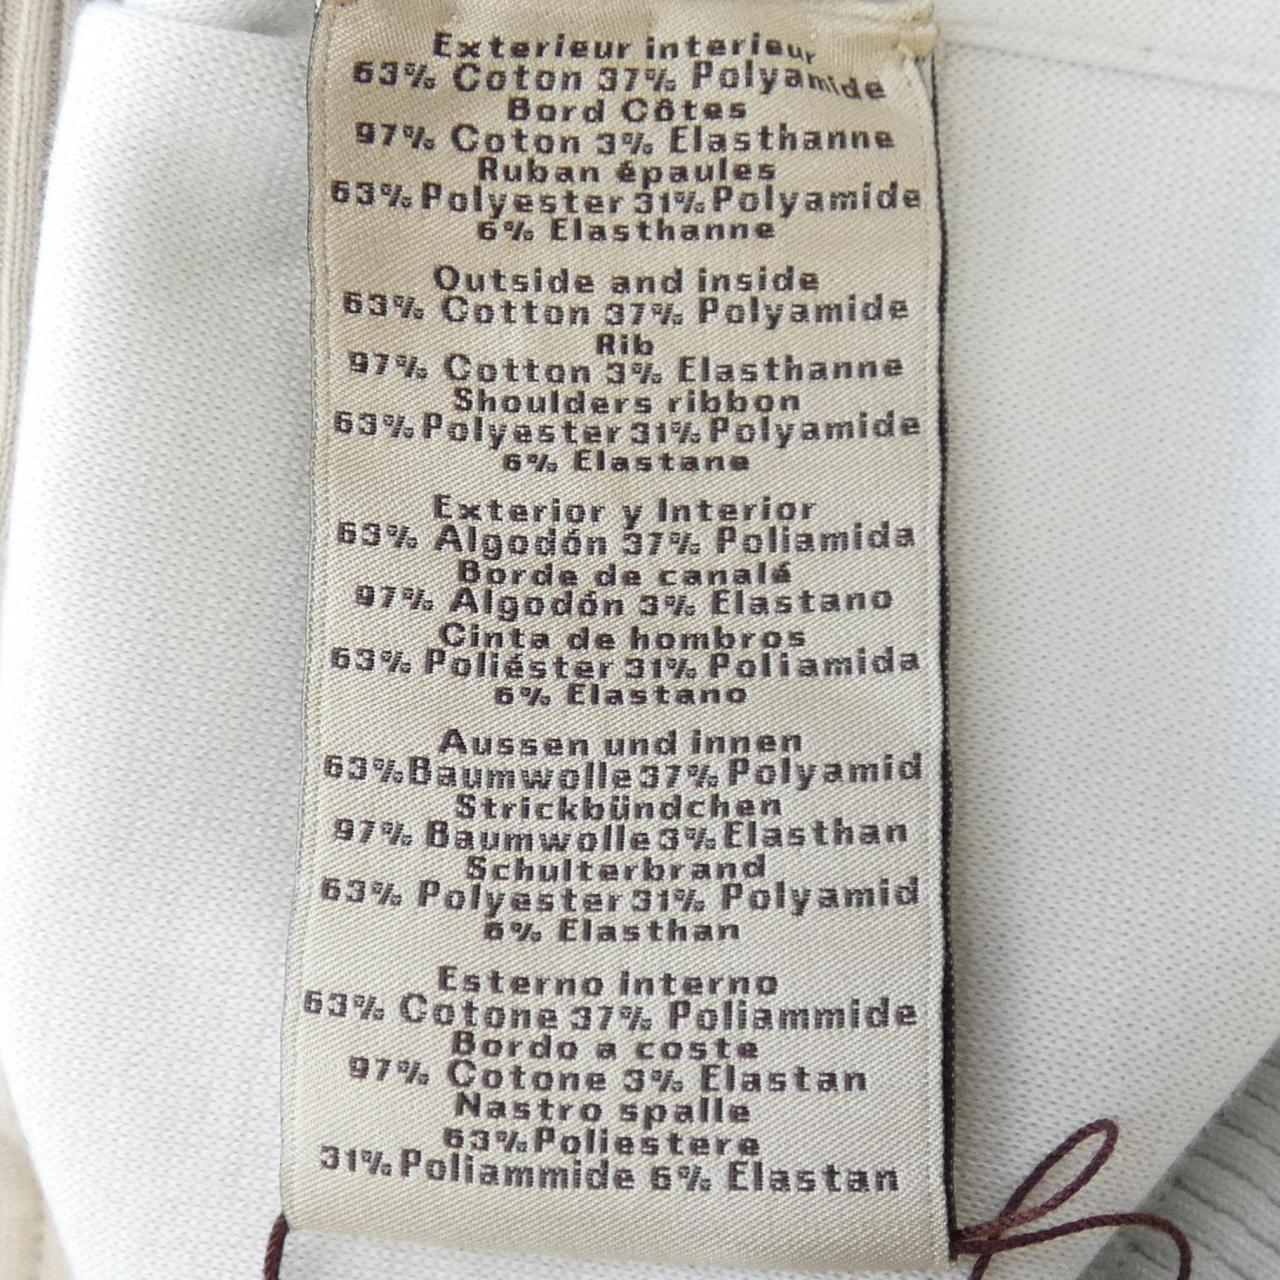 Exterieur interieur
63% Coton 37% Polyamide
Bord Côtes
97% Coton 3% Elasthanne
Ruban épaules
63% Polyester 31% Polyamide
6% Elasthanne
Outside and inside
63% Cotton 37% Polyamide
Rib
97% Cotton 3% Elasthanne
Shoulders ribbon
63% Polyester 31% Polyamide
6% Elastane
Exterior y Interior
63% Algodón 37% Poliamida
Borde de canalé
97% Algodón 3% Elastano
Cinta de hombros
63% Poliéster 31% Poliamida
6% Elastano
Aussen und innen
63% Baumwolle 37% Polyamid
Strickbündchen
97% Baumwolle 3% Elasthan
Schulterbrand
63% Polyester 31% Polyamid
6% Elasthan
Esterno interno
63% Cotone 37% Poliammide
Bordo a coste
97% Cotone 3% Elastan
Nastro spalle
63% Poliestere
31% Poliammide 6% Elastan